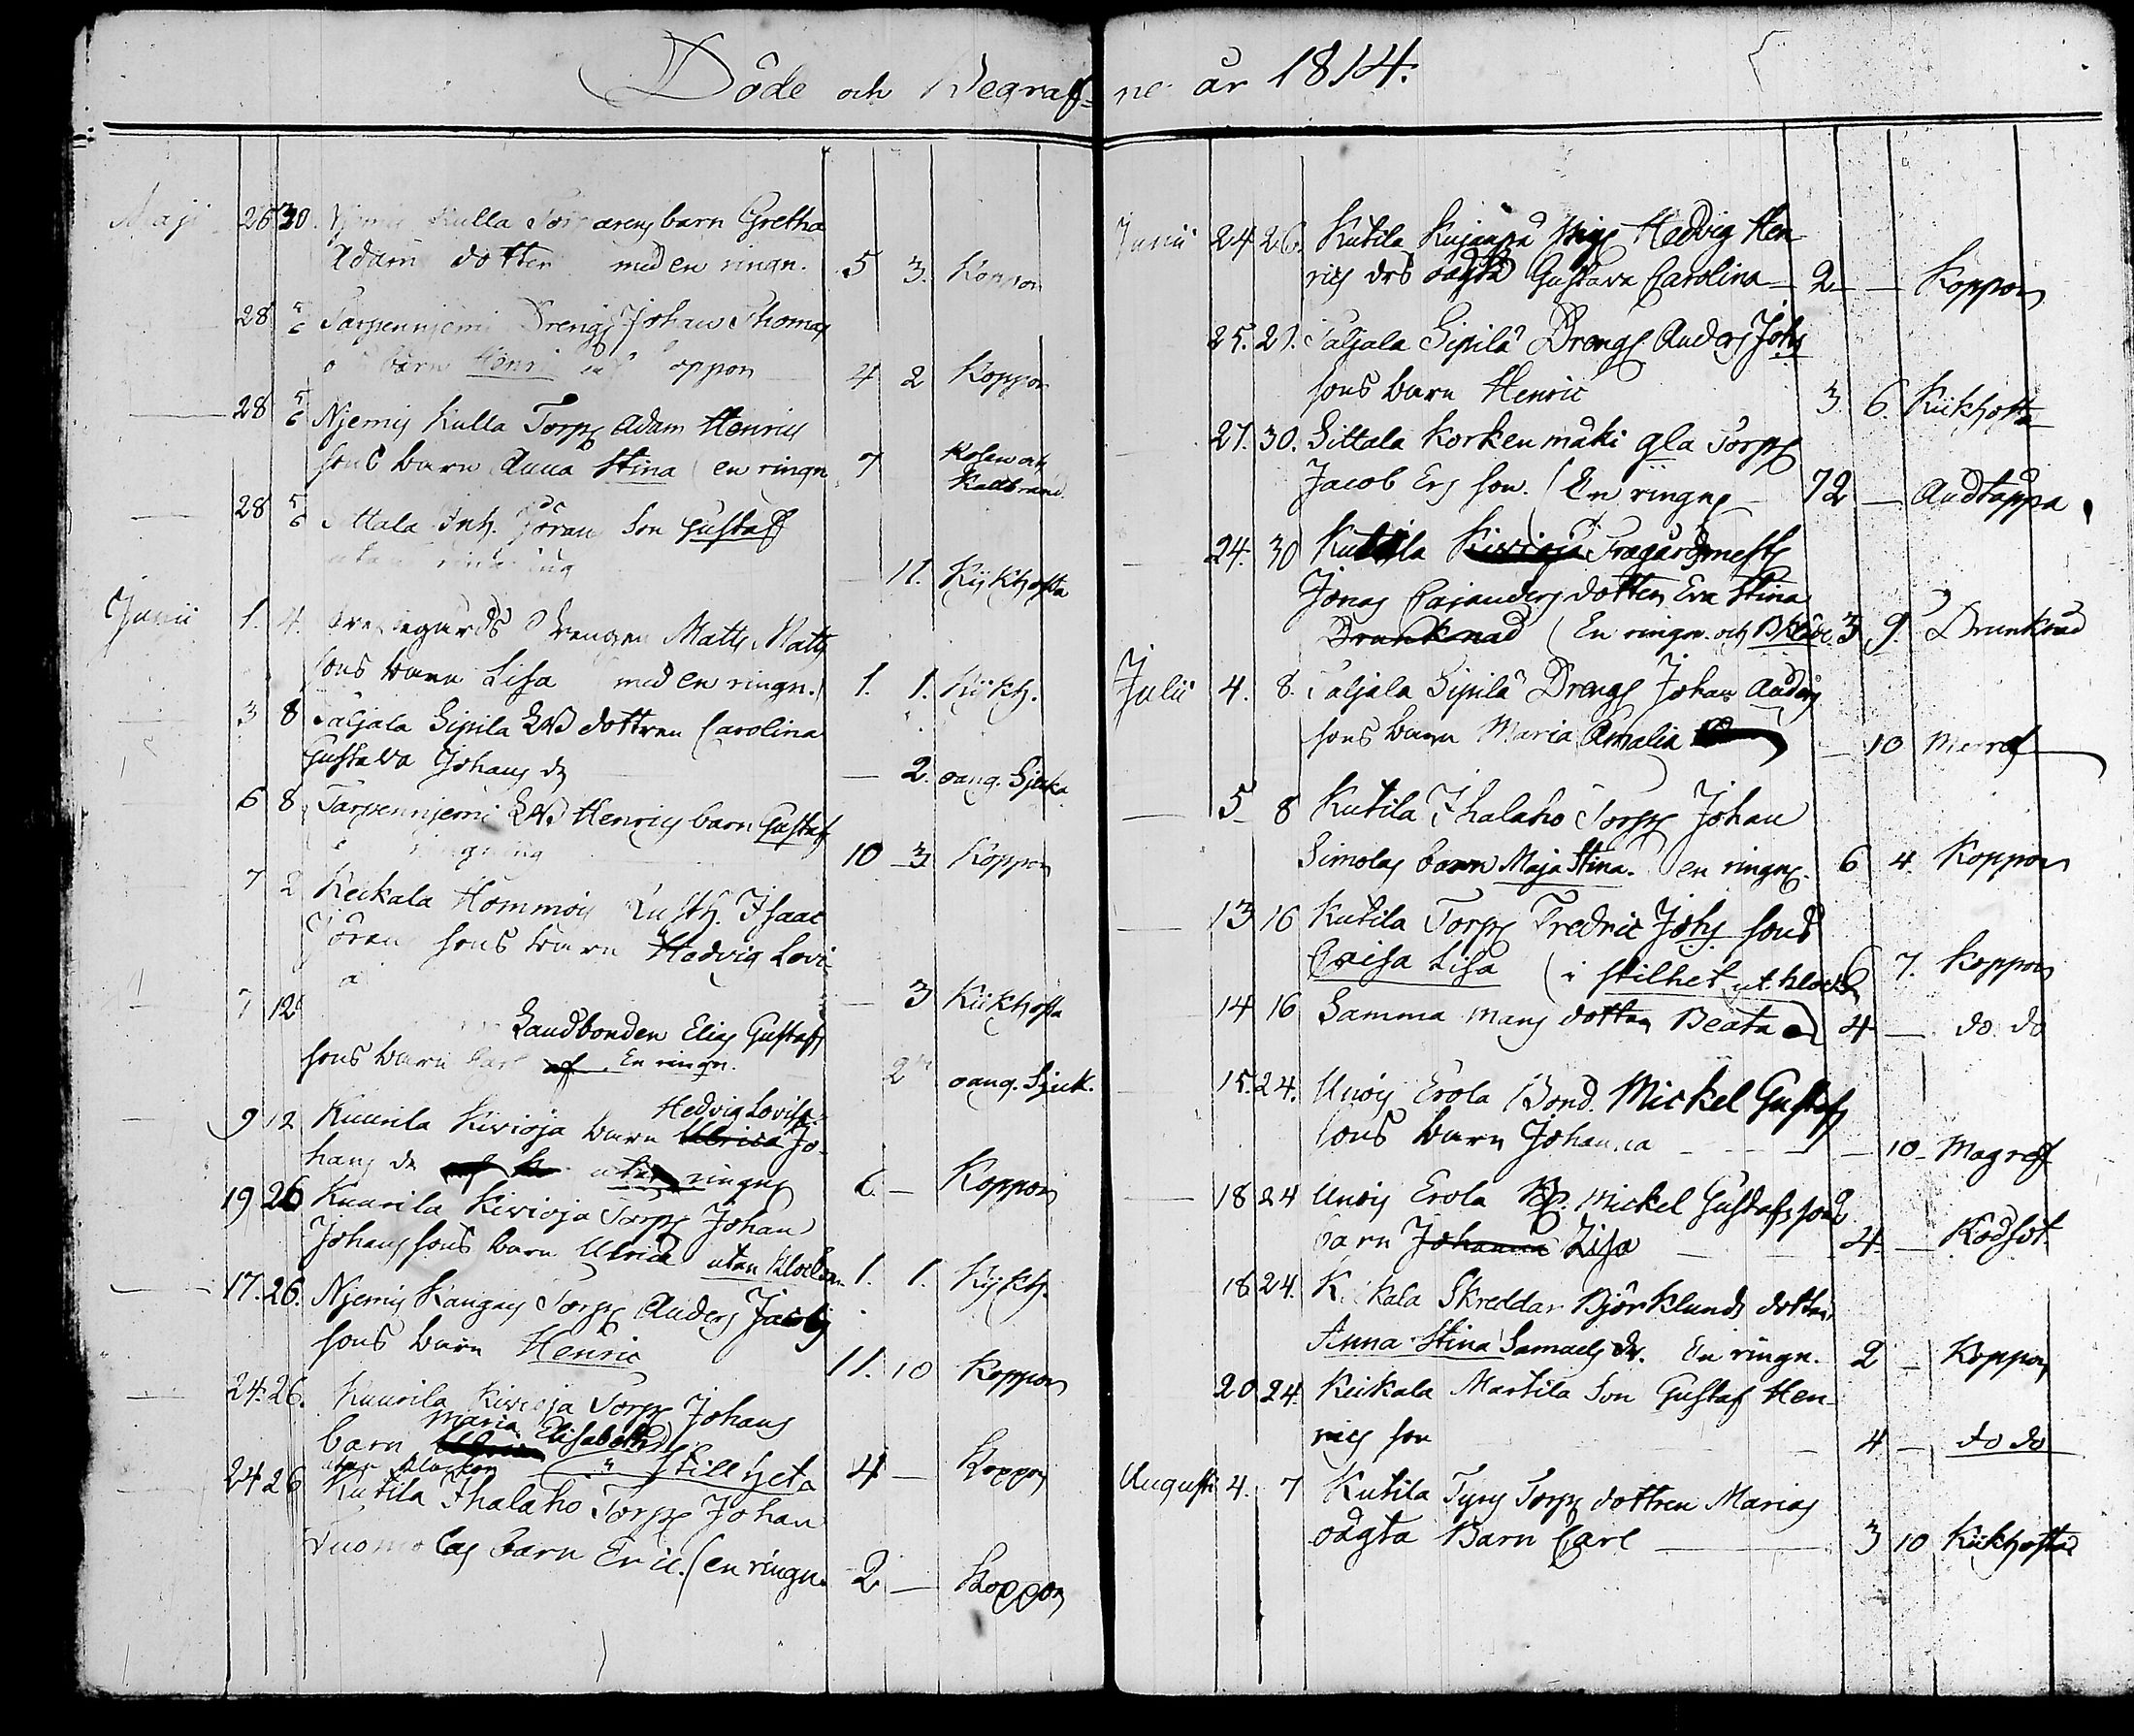 Döde och Begrafne år 1814.
Maji 26 30. Njemis Kulla Torparens barn Gretha
Adams dotter med en ringn. 5 3. Koppor
28 5/6 Tarpennjemi Drengs Johan Thomas
barn Henric oppon 4 2 Koppor
28 5/6 Njemis Kulla Torps Adam Henrics
sons barn Anna Stina (en ringn. 7 Kolera och Kallbrand.
28 5/6 Sittala Inh. Jöran Son Gustaf
utan ringning 11. Kijkhosta
Junii 1. 4. Drengen Matts Matts
sons barn Lisa med en ringn. 1. 1. Kijkh.
3 8 Taljala Sipila dottren Carolina
Gustava Johans dr — 2. oang. Sjuka
6 8 Tarpennjemi Henrics barn Gustaf
ringning 10 3 Koppor
7 Keikala Hommois Isaac
Jörans sons barn Hedvig Lovi
a — 3 Kiikhosta
7 12 Landbonden Elias Gustafs
sons barn Carl En ringn. 2 oang. Sjuk.
9 12 Kuurila Kivioja barn Ulrica Hedvig Lovisa Jo-
hans dr utan ringng 6 — Koppor
19 26 Kuurila Kivioja Torps Johan
Johans sons barn Ulrica utan klockor 1. 1. Kijkh.
17. 26. Njemis Kangas Torps Anders Jacobs
sons barn Henric 11. 10 Koppor
24. 26. Kuurila Kivioja Torps Johans
barn Maria Elisabeth
utan klockor i stillhet 4 — Koppor
24 26 Kutila Ihalaho Torps Johan
Tuomolas barn Eric. (en ringn. 2 — Koppor
Junii 24 26. Kutila Kujanpä Pigs Hedvig Hen
rics drs oägta Gustava Carolina — 2 — Koppor
25. 27. Taljala Sipilä Drengs Anders Johs
sons barn Henric 3. 6. Kiikhosta
27. 30. Sittala Korkenmäki gla Torps
Jacob Ers son. (En ringng 72 — Andtäppa
24. 30 Kutila Kivioja Trägårdsmest
Jonas Cajanders dotter Eva Stina
Drunknad (En ringn. och 3 9. Drunknad
Julii 4. 8. Taljala Sipilä Drengs Johan Anders
sons barn Maria Amalia — 10
5 8 Kutila Ihalaho Torps Johan
Simolas barn Maja Stina. en ringng. 6 4. Koppor
13 16 Kutila Torps Fredric Johs sons
Caisa Lisa (i stilhet ut klock 6 7. Koppor
14 16 Samma mans dotter Beata 4 — do. do
15. 24. Unois Erola Bond. Mickel Gustafs
sons barn Johanna — 10 —
18 24 Unois Erola Mickel Gustafs sons
barn Johanna Lisa 4 — Rödsot
18 24. Keikala Skreddar Björklunds dotter
Anna Stina Samuels dr. En ringn. 2 — Koppor
20 24. Keikala Martila Son Gustaf Hen-
rics son 4 — do do
Augusti 4. 7 Kutila Tyrys Torps dottren Marias
oägta Barn Carl — 3 10 Kiikhosta